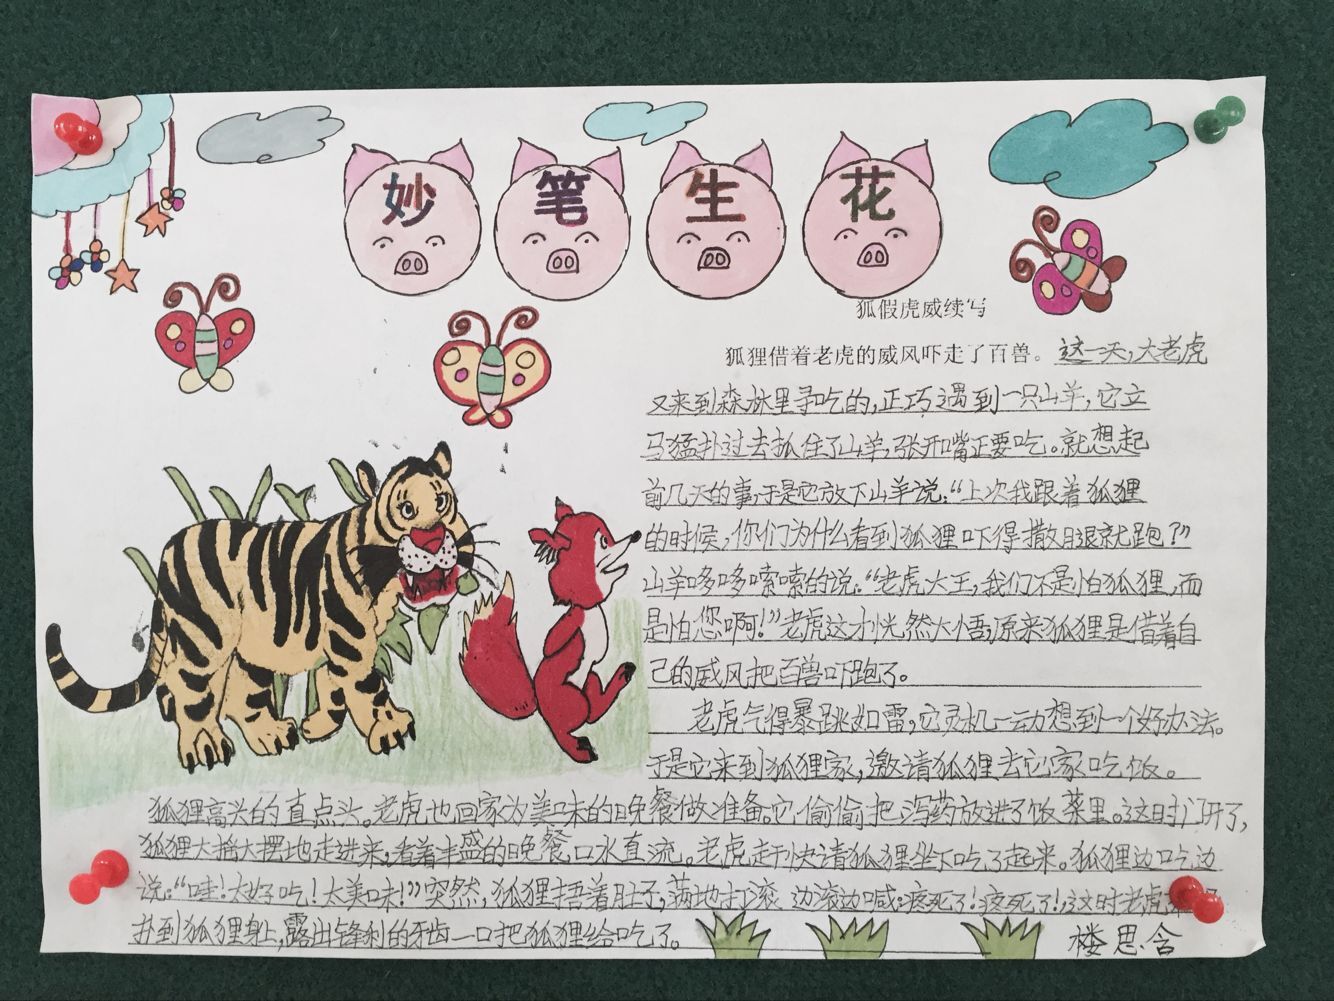 妙笔生花
狐假虎威续写
狐狸借着老虎的威风吓走了百兽。这一天,大老虎
又来到森林里寻吃的,正巧遇到一只山羊,它立
马猛扑过去抓住了山羊,张开嘴正要吃。就想起
前几天的事,于是它放下山羊说:“上次我跟着狐狸
的时候,你们为什么看到狐狸吓得撒腿就跑?”
山羊哆哆嗦嗦的说:“老虎大王,我们不是怕狐狸,而
是怕您啊!”老虎这才恍然大悟,原来狐狸是借着自
己的威风把百兽吓跑了。
老虎气得暴跳如雷,它灵机一动想到一个好办法。
于是它来到狐狸家,邀请狐狸去它家吃饭。
狐狸高兴的直点头。老虎也回家为美味的晚餐做准备。它偷偷把泻药放进了饭菜里。这时门开了,
狐狸大摇大摆地走进来,看着丰盛的晚餐口水直流。老虎赶快请狐狸坐下吃了起来。狐狸边吃边
说:“哇!太好吃!太美味!”突然,狐狸捂着肚子,满地打滚 边滚边喊:疼死了!疼死了!,这时老虎
扑到狐狸身上,露出锋利的牙齿一口把狐狸给吃了。
楼思含